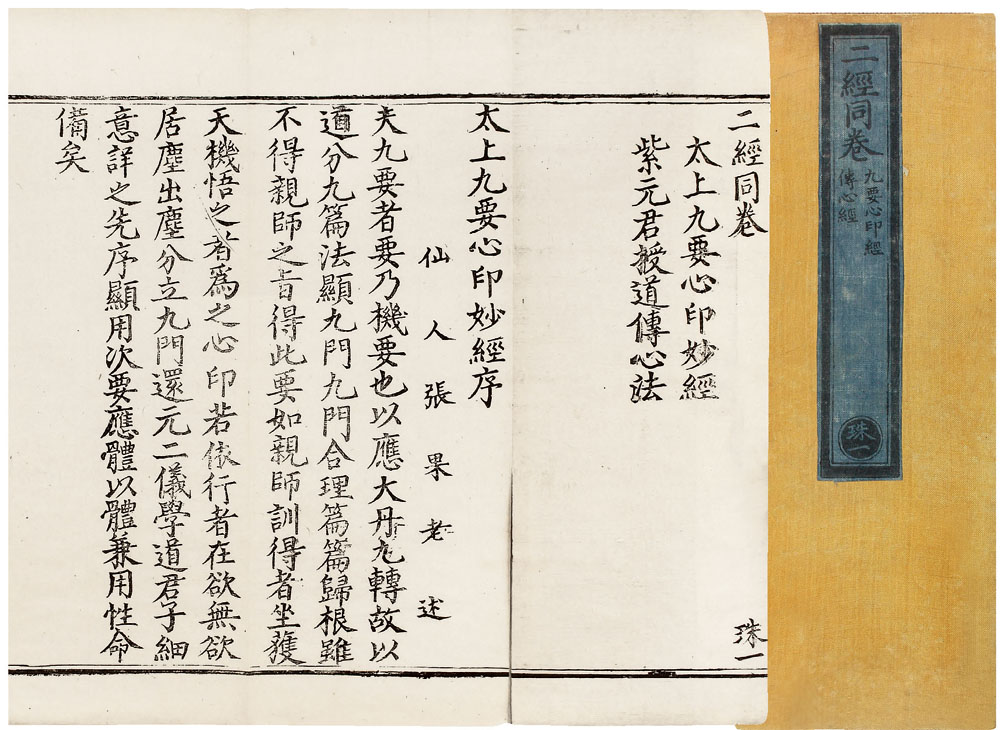 二經同卷
九要心印經
傳心經
珠一
二經同卷
珠一
太上九要心印妙經
紫元君授道傳心法
太上九要心印妙經序
仙人張果老述
夫九要者要乃機要也以應大丹九轉故以
道分九篇法顯九門九門合理篇篇歸根雖
不得親師之旨得此要如親師訓得者坐獲
天機悟之者爲之心印若依行者在欲無欲
居塵出塵分立九門還元二儀學道君子細
意詳之先序顯用次要應體以體兼用性命
備矣